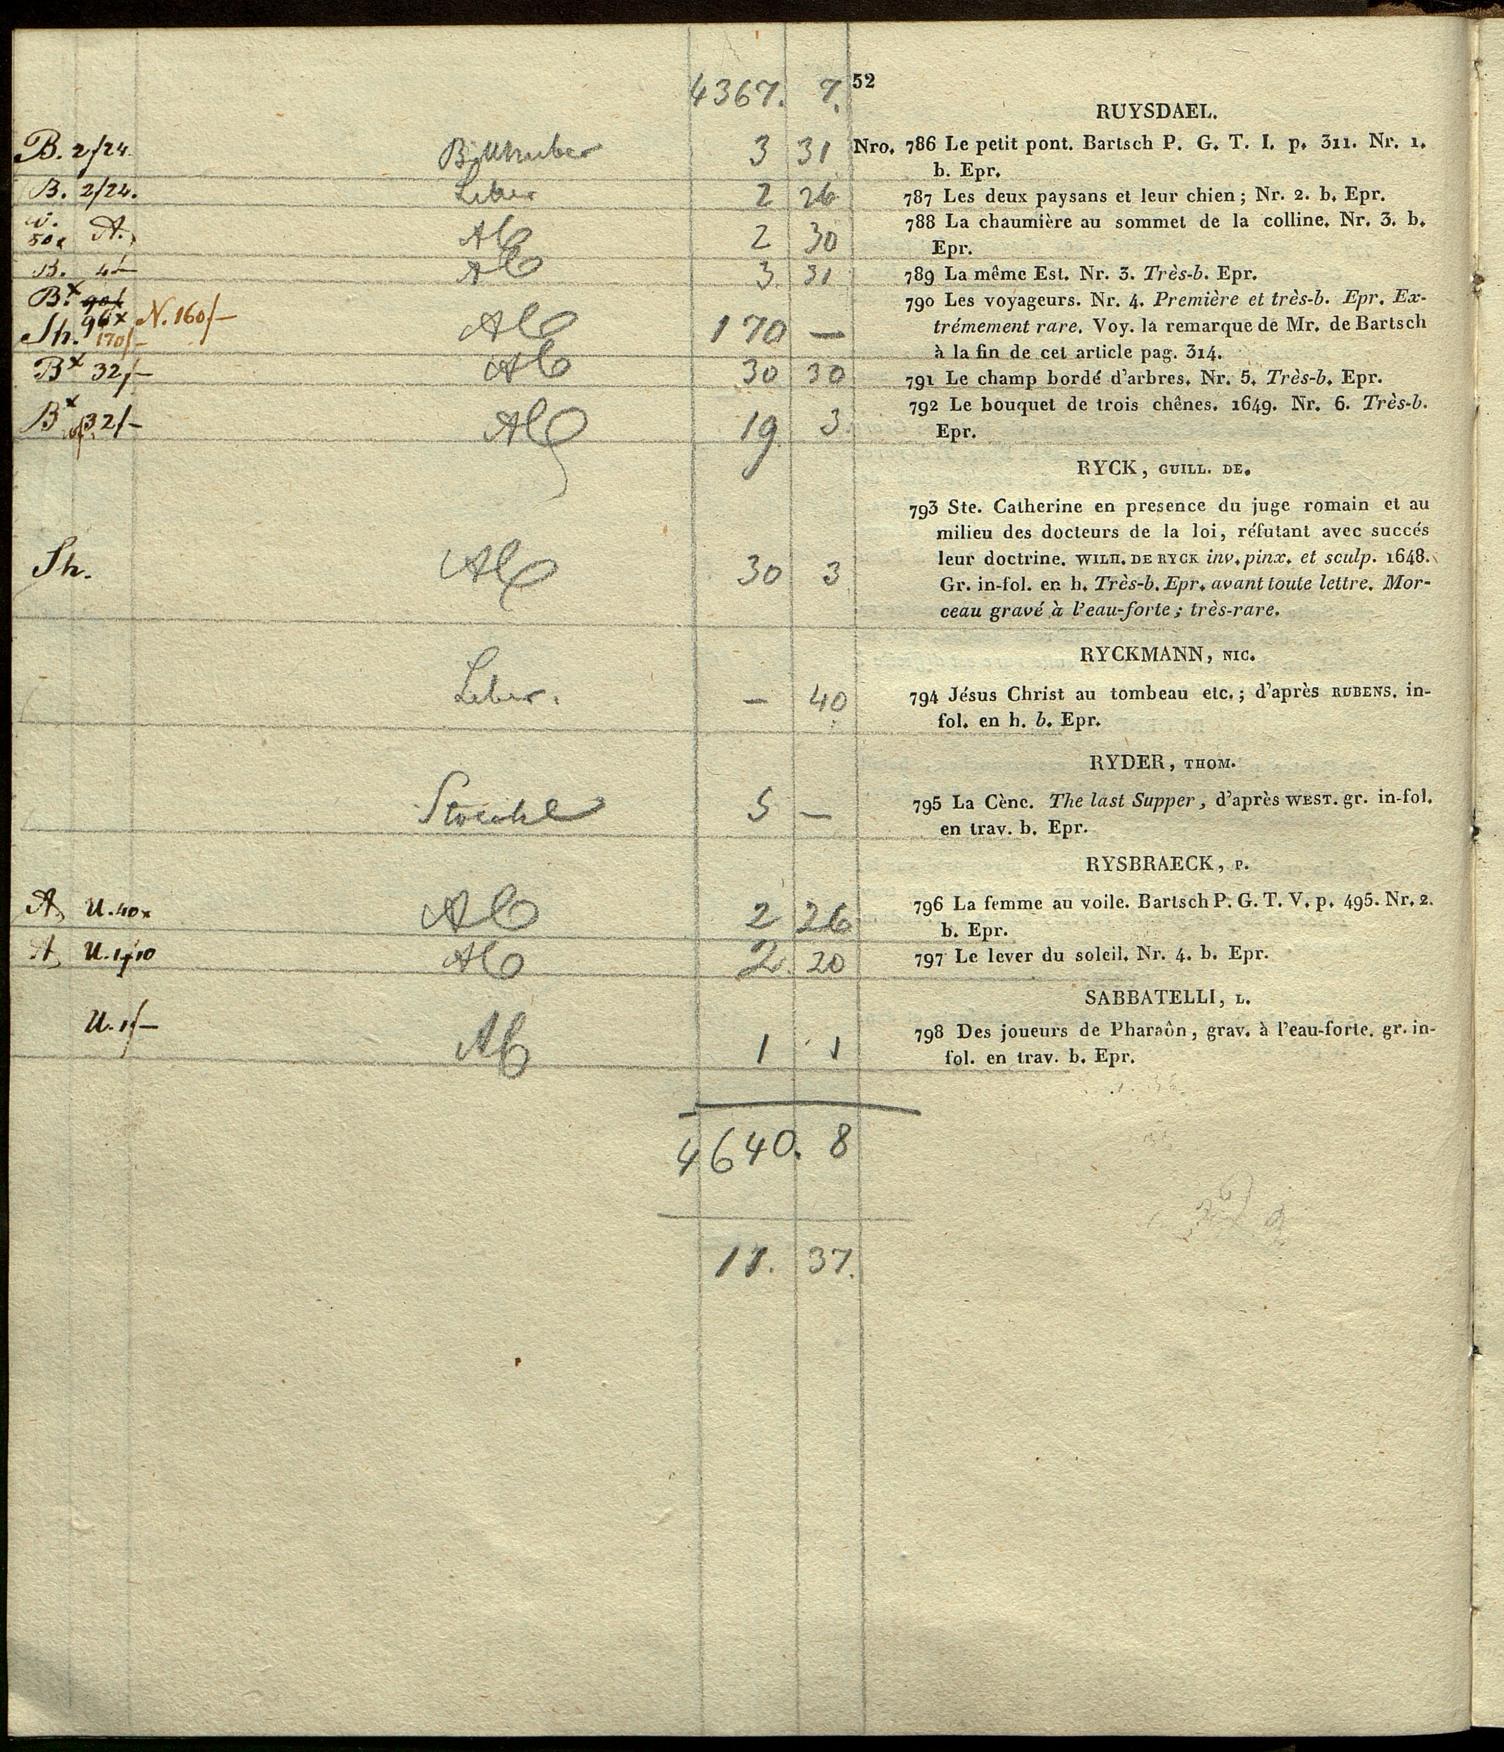 4367. 7. 52
RUYSDAEL.
B. 2/24. 3 31 Nro. 786 Le petit pont. Bartsch P. G. T. I. p. 311. Nr. 1.
b. Epr.
B. 2/24. Leber 2 26 787 Les deux paysans et leur chien; Nr. 2. b. Epr.
50x A. Alb 2 30 788 La chaumière au sommet de la colline. Nr. 3. b.
Epr.
B. 4/— Alb 3 31 789 La même Est. Nr. 3. Très-b. Epr.
Bx 90/ 96x N. 160/— 790 Les voyageurs. Nr. 4. Première et très-b. Epr. Ex-
Sh. 170/— Alb 170 — trémement rare. Voy. la remarque de Mr. de Bartsch
à la fin de cet article pag. 314.
Bx 32/— Alb 30 30 791 Le champ bordé d'arbres. Nr. 5. Très-b. Epr.
Bx 32/— Alb 19 3 792 Le bouquet de trois chênes. 1649. Nr. 6. Très-b.
Epr.
RYCK, GUILL. DE.
793 Ste. Catherine en presence du juge romain et au
milieu des docteurs de la loi, réfutant avec succés
Sh. Alb 30 3 leur doctrine. WILH. DE RYCK inv. pinx. et sculp. 1648.
Gr. in-fol. en h. Très-b. Epr. avant toute lettre. Mor-
ceau gravé à l'eau-forte; très-rare.
RYCKMANN, NIC.
Leber. — 40 794 Jésus Christ au tombeau etc.; d'après RUBENS. in-
fol. en h. b. Epr.
RYDER, THOM.
Stoeckl 5 — 795 La Cènc. The last Supper, d'après WEST. gr. in-fol.
en trav. b. Epr.
RYSBRAECK, P.
A. U. 40x Alb 2 26 796 La femme au voile. Bartsch P. G. T. V. p. 495. Nr. 2.
b. Epr.
A. U. 1/10 Alb 2. 20 797 Le lever du soleil. Nr. 4. b. Epr.
SABBATELLI, L.
U. 1/— Alb 1 1 798 Des joueurs de Pharaôn, grav. à l'eau-forte. gr. in-
fol. en trav. b. Epr.
4640. 8
11. 37.